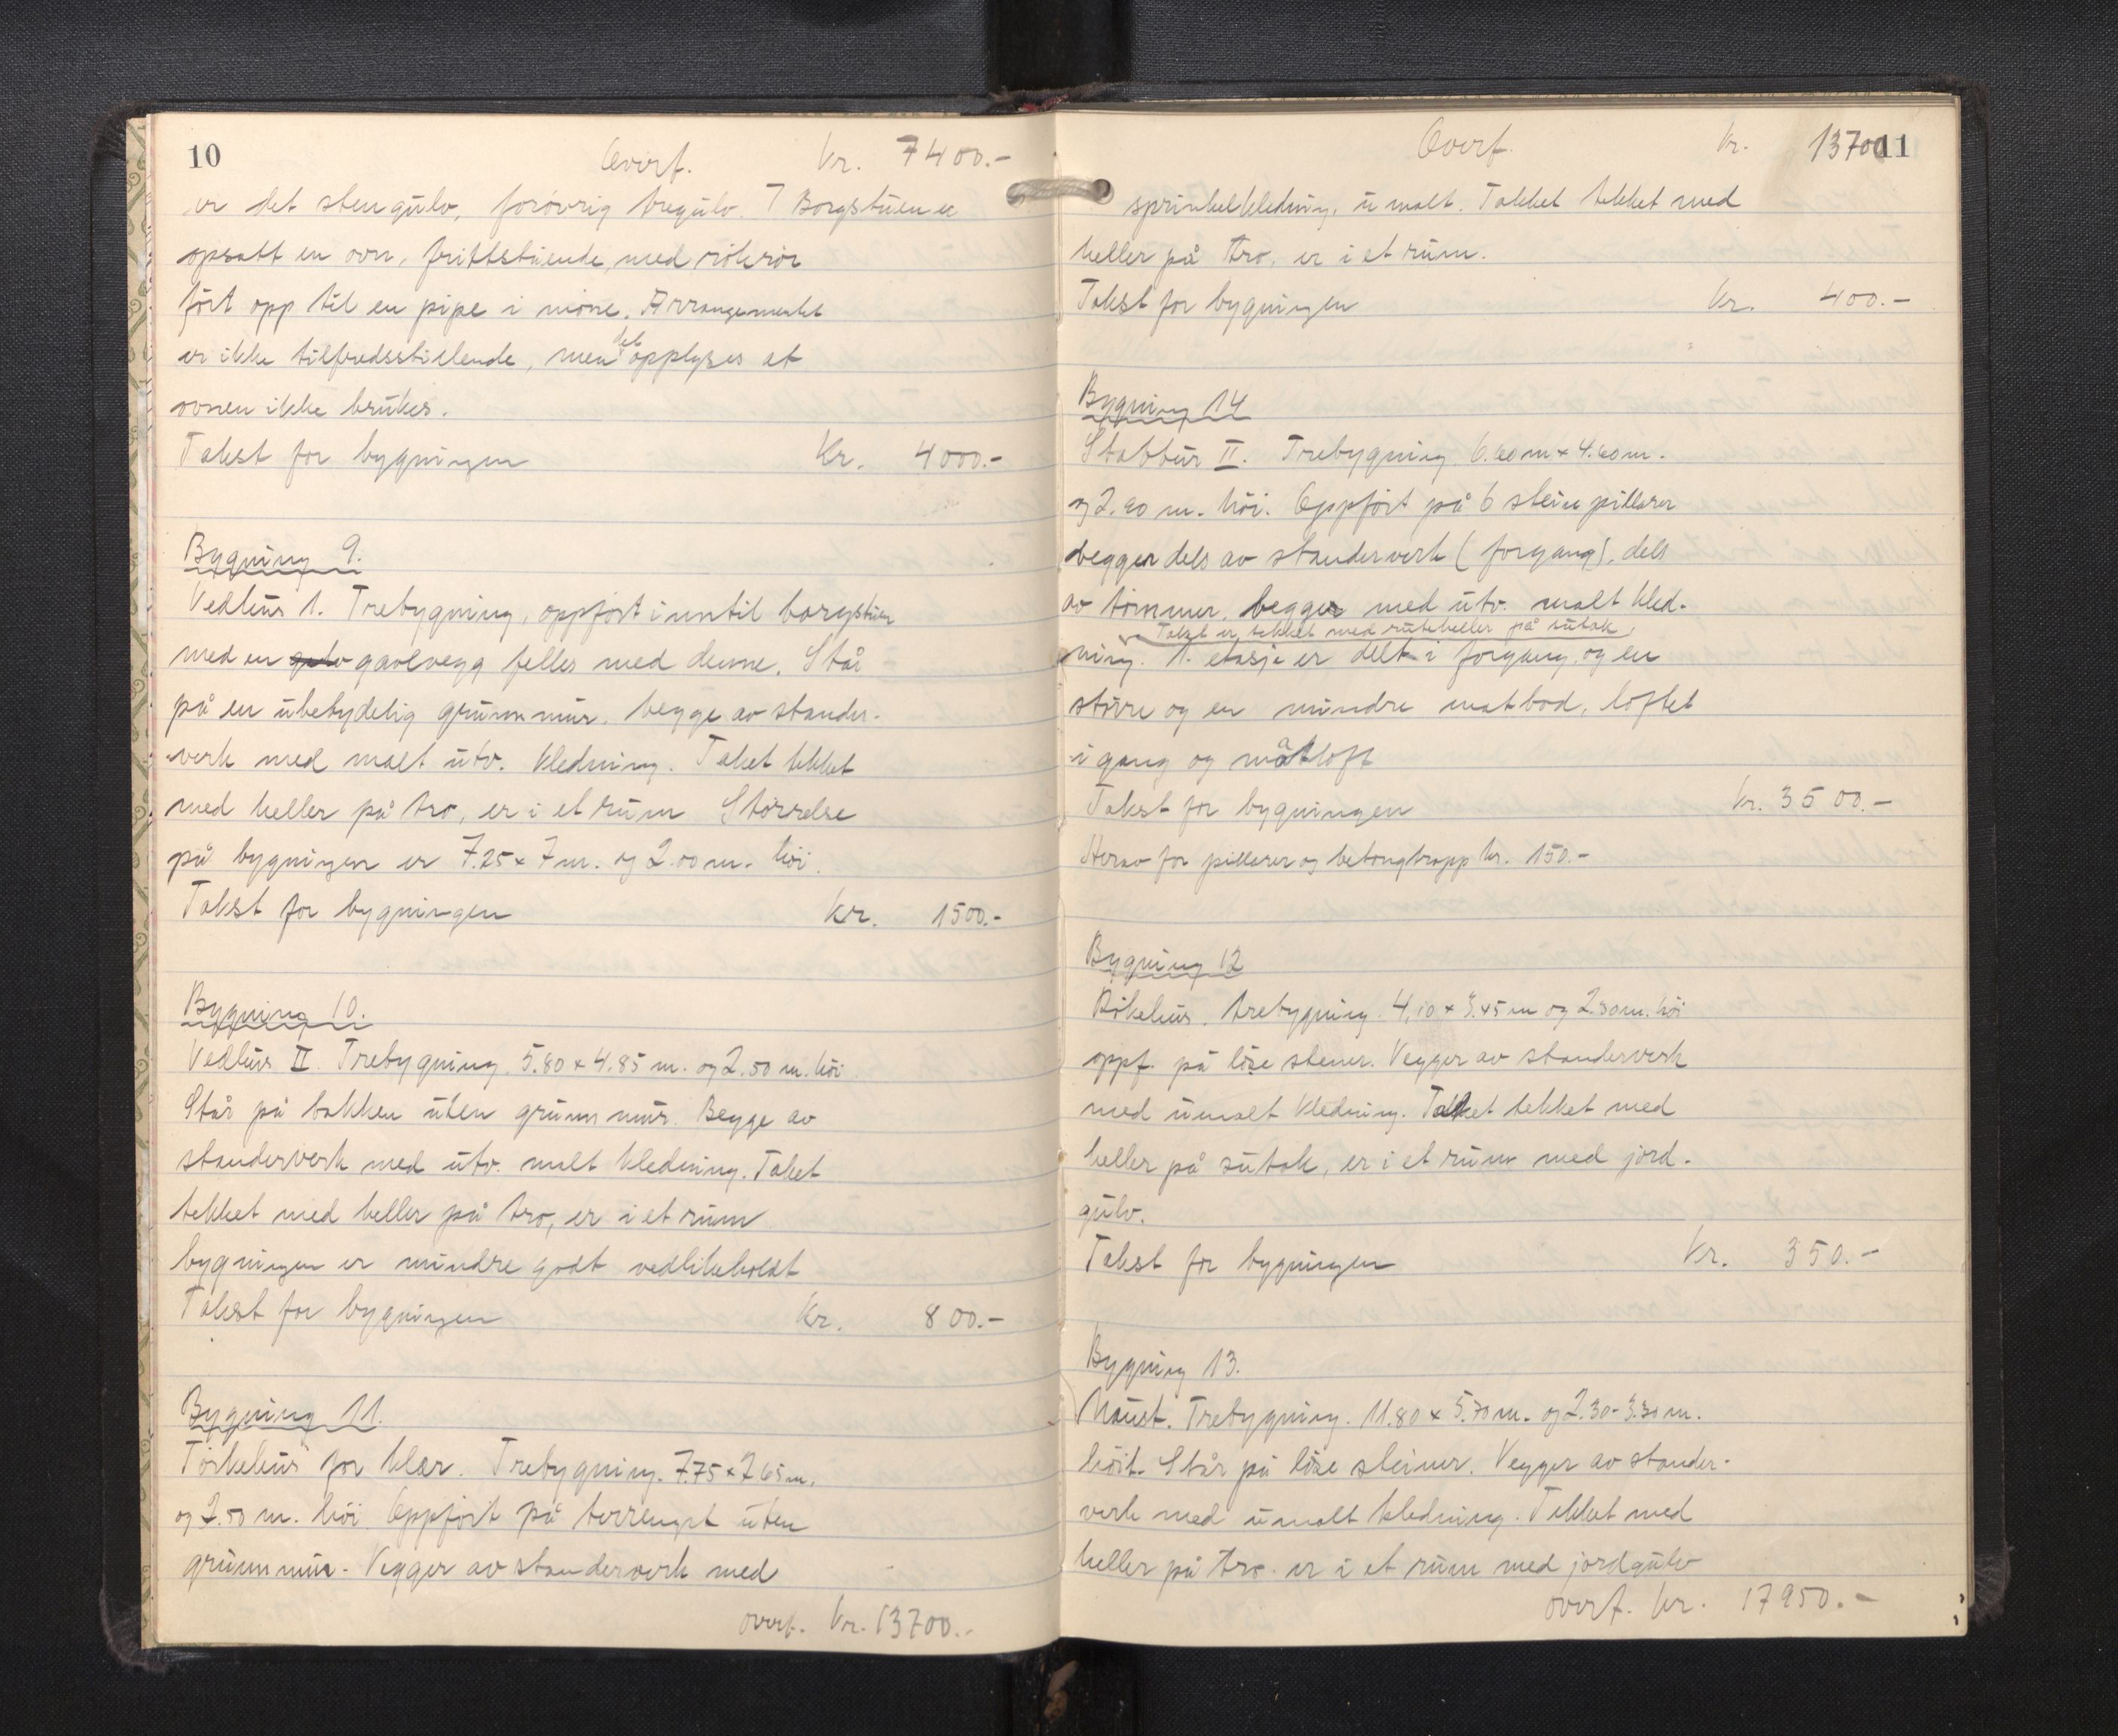 10
Overf. Kr. 7400.-
er det stengulv, forøvrig tregulv. I Borgstuen er
opsatt en ovn, frittstående, med rökrör
fört opp til en pipe i möne. Arrangementet
er ikke tilfredsstillende, men det opplyses at
ovnen ikke brukes.
Takst for bygningen Kr. 4000.-
Bygning 9.
Vedhus 1. Trebygning, oppfört inntil borgstuen
med en gavlvegg felles med denne. Står
på en ubetydelig grunnmur. Vegge av stander-
verk med malt utv. kledning. Taket tekket
med heller på tro, er i et rum Störrelse
på bygningen er 7.25 x 7 m. og 2.00 m. höi.
Takst for bygningen Kr. 1500.-
Bygning 10.
Vedhus II Trebygning. 5.80 x 4.85 m. og 2.50 m. höi
Står på bakken uten grunnmur. Vegge av
standerverk med utv. malt kledning. Taket
tekket med heller på tro, er i et rum
bygningen er mindre godt vedlikeholdt
Takst for bygningen Kr. 800.-
Bygning 11.
Törkehus for klær. Trebygning. 7.75 x 7.65 m.
og 2.50 m. höi. Oppfört på terrenget uten
grunnmur. Vegger av standerverk med
overf. Kr. 13700.-
11
Overf. Kr. 13700
sprinkelkledning, umalt. Takket tekket med
heller på tro. er i et rum.
Takst for bygningen Kr. 400.-
Bygning 14
Stabbur II. Trebygning 6.60 m x 4.60 m.
og 2.90 m. höi. Oppfört på 6 steinpillarer
vegger dels av standerverk (forgang), dels
av tömmer, begge med utv. malt kled-
Taket er tekket med ruteheller på sutak.
ning. 1. etasje er delt i forgang og en
större og en mindre matbod, loftet
i gang og matloft
Takst for bygningen Kr. 3500.-
Herav for pillarer og betongtrapp kr. 150.-
Bygning 12
Rökehus. trebygning. 4.10 x 3.45 m og 2.30 m. höi
oppf. på löse stener. Vegger av standerverk
med umalt kledning. Taket tekket med
heller på sutak, er i et rum med jord-
gulv.
Takst for bygningen Kr. 350.-
Bygning 13.
Naust. Trebygning. 11.80 x 5.70 m. og 2.30-3.30 m.
höit. Står på löse steiner. Vegger av stander-
verk med umalt kledning. Tekket med
heller på tro. er i et rum med jordgulv
overf. kr. 17950.-